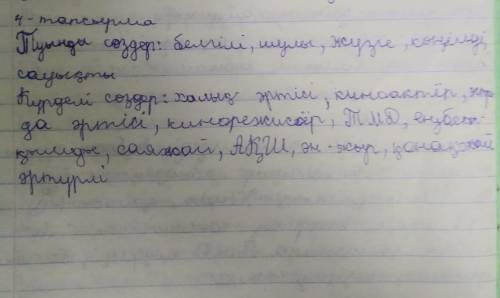 4-тапсырма
Туынды сөздер: белгілі, шулы, жүзге, көңілді,
сауықты
Күрделі сөздер: халық әртісі, киноактёр, хор
да әртісі, кинорежисёр, ТМД, еңбек-
саяжай, АҚШ, ән-жыр, қонақжай
әртүрлі